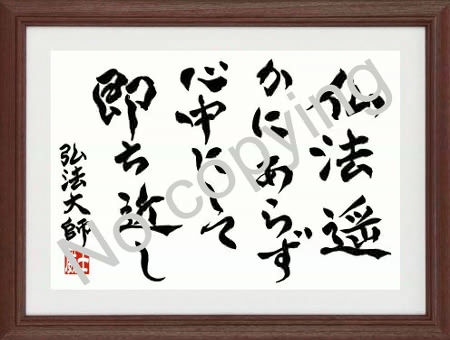 仏法遥
かにあらず
心中にして
即ち近し
弘法大師
No copying